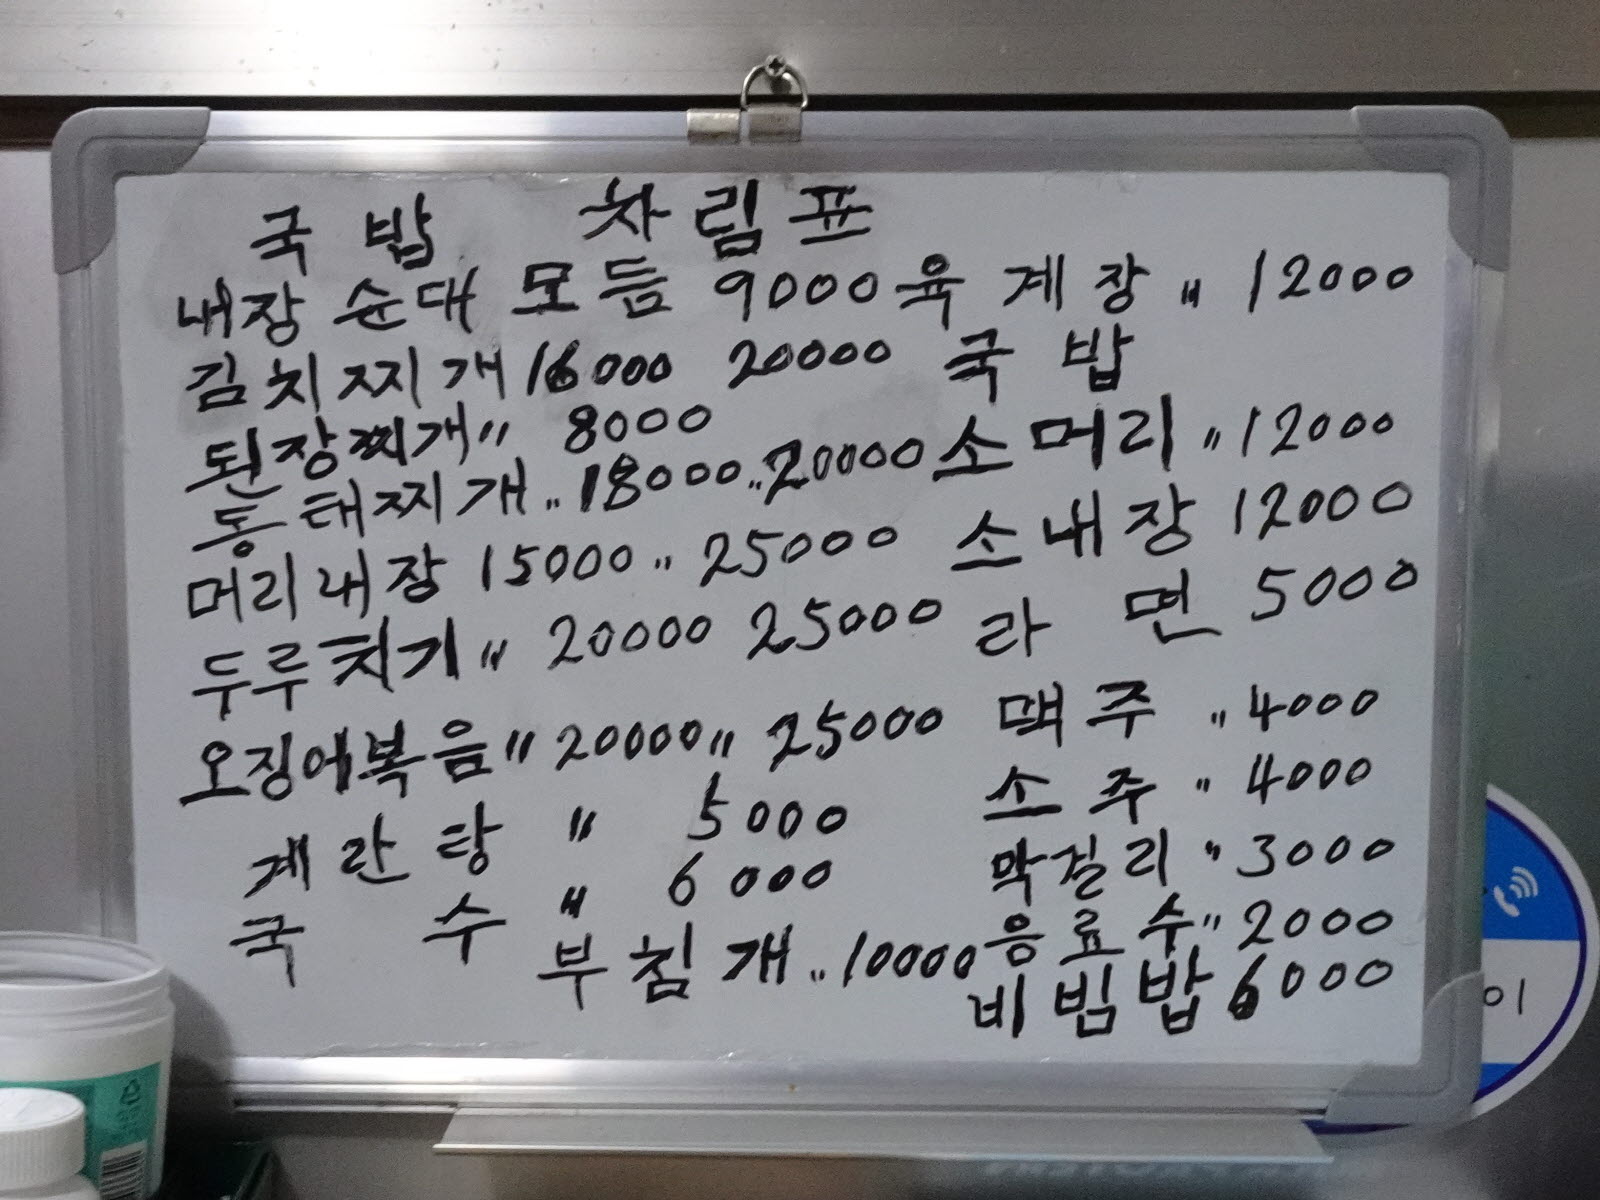 국밥 차림표
내장 순대 모듬 9000
김치찌개 16000 20000
된장찌개 〃 8000
동태찌개 〃 18000 〃 20000
머리내장 15000 〃 25000
두루치기 〃 20000 25000
오징어볶음 〃 20000 〃 25000
계란탕 〃 5000
국수 〃 6000
부침개 〃 10000
육계장 〃 12000
국밥
소머리 〃 12000
소내장 12000
라면 5000
맥주 〃 4000
소주 〃 4000
막걸리 〃 3000
음료수 〃 2000
비빔밥 6000
이